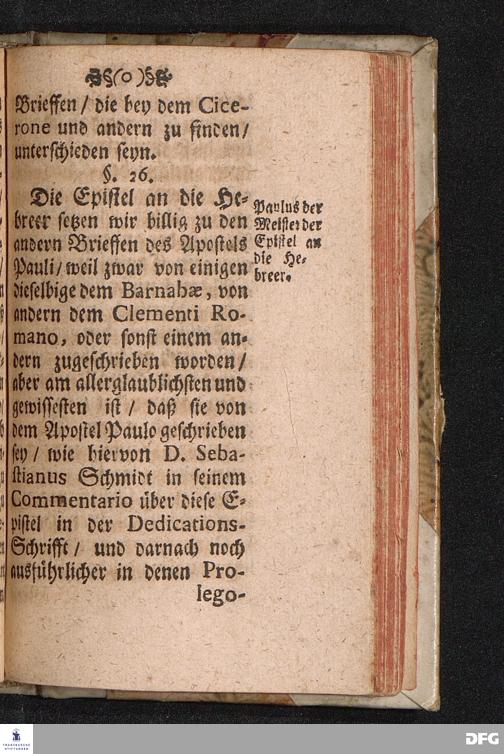 (o)
Brieffen / die bey dem Cice-
rone und andern zu finden /
unterschieden seyn.
§. 26.
Die Epistel an die He-
breer setzen wir billig zu den
andern Brieffen des Apostels
Pauli / weil zwar von einigen
dieselbige dem Barnabæ, von
andern dem Clementi Ro-
mano, oder sonst einem an-
dern zugeschrieben worden /
aber am allerglaublichsten und
gewissesten ist / daß sie von
dem Apostel Paulo geschrieben
sey / wie hiervon D. Seba-
stianus Schmidt in seinem
Commentario über diese E-
pistel in der Dedications-
Schrifft / und darnach noch
ausführlicher in denen Pro-
lego-
Paulus der
Meister der
Epistel an
die He-
breer.
FRANCKESCHE
STIFTUNGEN
DFG